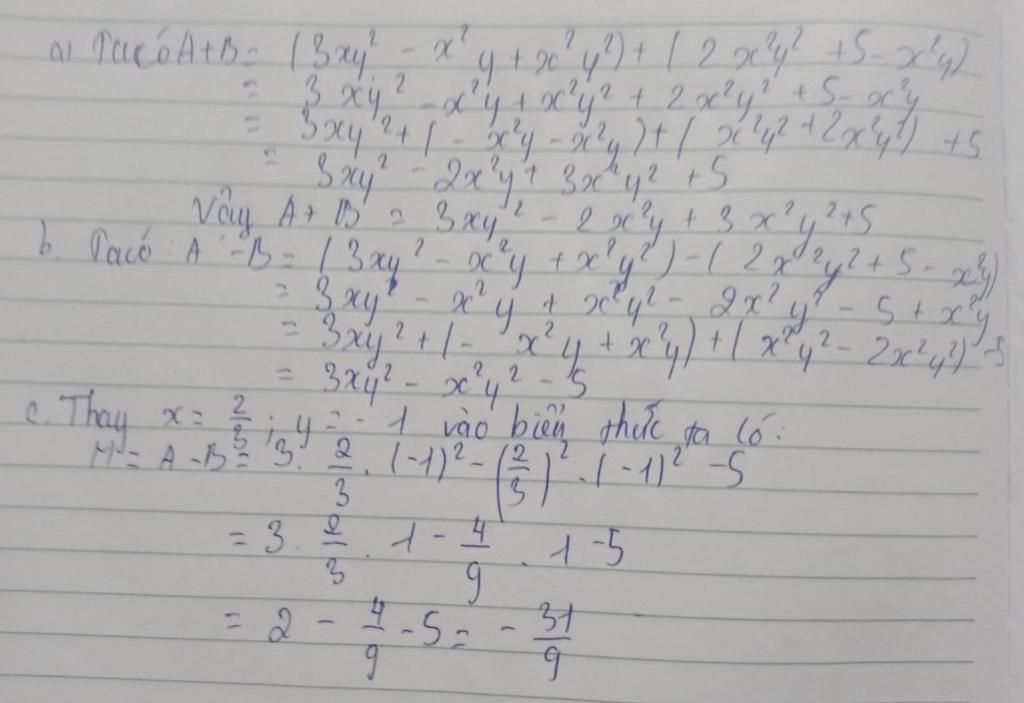 a) Ta có A+B = (3xy² - x²y + x²y²) + (2x²y² + 5 - x²y)
= 3xy² - x²y + x²y² + 2x²y² + 5 - x²y
= 3xy² + (- x²y - x²y) + (x²y² + 2x²y²) + 5
= 3xy² - 2x²y + 3x²y² + 5
Vậy A + B = 3xy² - 2x²y + 3x²y² + 5
b. Ta có: A - B = (3xy² - x²y + x²y²) - (2x²y² + 5 - x²y)
= 3xy² - x²y + x²y² - 2x²y² - 5 + x²y
= 3xy² + (- x²y + x²y) + (x²y² - 2x²y²) - 5
= 3xy² - x²y² - 5
c. Thay x = 2/3 ; y = - 1 vào biểu thức ta có:
M = A - B = 3. 2/3 . (-1)² - (2/3)² . (-1)² - 5
= 3. 2/3 . 1 - 4/9 . 1 - 5
= 2 - 4/9 - 5 = - 31/9